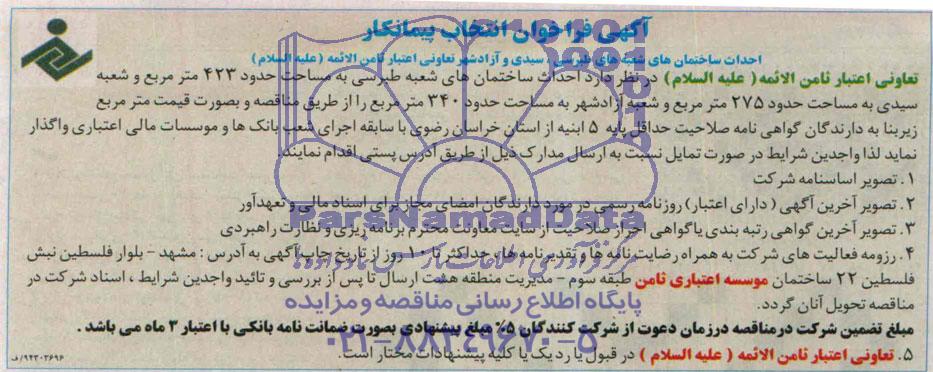 آگهی فراخوان انتخاب پیمانکار
احداث ساختمان های شعبه های طبرسی ، سیدی و آزادشهر تعاونی اعتبار ثامن الائمه (علیه السلام)
تعاونی اعتبار ثامن الائمه ( علیه السلام ) در نظر دارد احداث ساختمان های شعبه طبرسی به مساحت حدود ۴۲۳ متر مربع و شعبه
سیدی به مساحت حدود ۲۷۵ متر مربع و شعبه آزادشهر به مساحت حدود ۳۴۰ متر مربع را از طریق مناقصه و بصورت قیمت متر مربع
زیربنا به دارندگان گواهی نامه صلاحیت حداقل پایه ۵ ابنیه از استان خراسان رضوی با سابقه اجرای شعب بانک ها و موسسات مالی اعتباری واگذار
نماید لذا واجدین شرایط در صورت تمایل نسبت به ارسال مدارک ذیل از طریق آدرس پستی اقدام نمایند.
۱. تصویر اساسنامه شرکت
۲. تصویر آخرین آگهی ( دارای اعتبار) روزنامه رسمی در مورد دارندگان امضای مجاز برای اسناد مالی و تعهدآور
۳. تصویر آخرین گواهی رتبه بندی یا گواهی احراز صلاحیت از سایت معاونت محترم برنامه ریزی و نظارت راهبردی
۴. رزومه فعالیت های شرکت به همراه رضایت نامه ها و تقدیرنامه ها، حداکثر تا ۱۰ روز از تاریخ چاپ آگهی به آدرس : مشهد - بلوار فلسطین نبش
فلسطین ۲۲ ساختمان موسسه اعتباری ثامن طبقه سوم - مدیریت منطقه هشت ارسال تا پس از بررسی و تائید واجدین شرایط ، اسناد شرکت در
مناقصه تحویل آنان گردد.
مبلغ تضمین شرکت در مناقصه در زمان دعوت از شرکت کنندگان ۵% مبلغ پیشنهادی بصورت ضمانت نامه بانکی با اعتبار ۳ ماه می باشد .
۵. تعاونی اعتبار ثامن الائمه ( علیه السلام ) در قبول یا رد یک یا کلیه پیشنهادات مختار است.
۹۴۳۰۳۶۹۶/ف
ParsNamadData
پایگاه اطلاع رسانی مناقصه و مزایده
۰۲۱-۸۸۳۴۹۶۷۰-۵